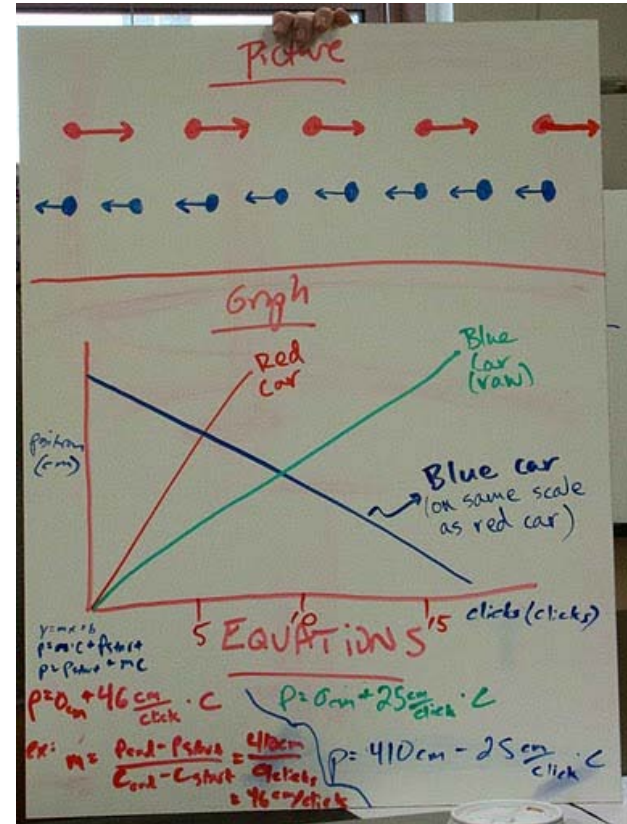 Picture
Graph
Red
car
Blue
Car
(raw)
position
(cm)
Blue car
(on same scale
as red car)
5 10 15 clicks (clicks)
EQUATIONS
y=mx+b
p=m·c+pstart
p=pstart+mc
p=0cm+46 cm/click · C
p=0cm+25 cm/click · C
ex: m= Pend-Pstart / Cend-Cstart = 410cm / 9clicks
= 46 cm/click
p=410cm-25 cm/click · C